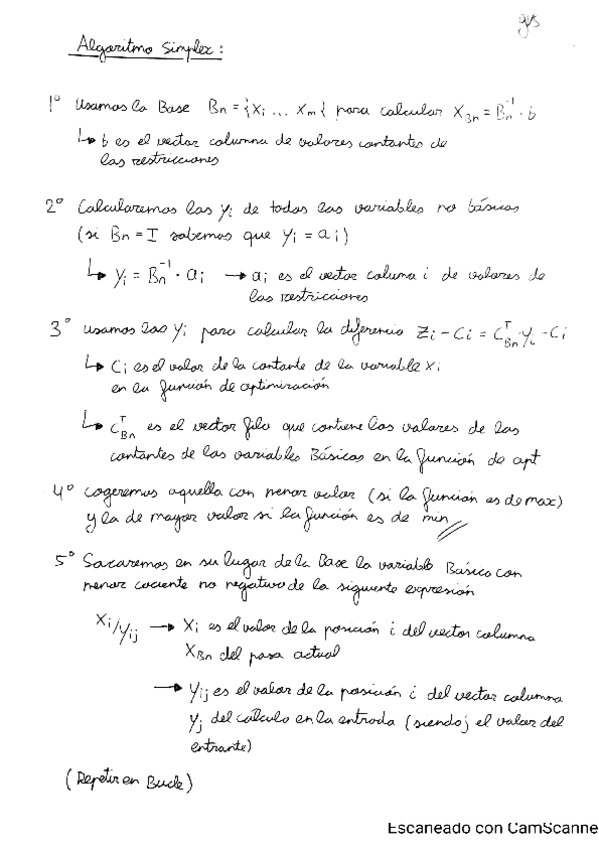 gvs
Algoritmo Simplex:
1º Usamos la Base Bn = {Xi ... Xm} para calcular XBn = Bn⁻¹ · b
↳ b es el vector columna de valores contantes de
las restricciones
2º Calcularemos las yi de todas las variables no básicas
(si Bn = I sabemos que yi = ai)
↳ yi = Bn⁻¹ · ai → ai es el vector columa i de valores de
las restricciores
3º usamos las yi para calcular la diferencia Zi - Ci = CᵀBn · yi - Ci
↳ Ci es el valor de la contante de la variable Xi
en la función de optimización
↳ CᵀBn es el vector fila que contiene los valores de las
contantes de las variables Básicas en la función de opt
4º cogeremos aquella con menor valor (si la función es de max)
y la de mayor valor si la función es de min
5º Sacaremos en su lugar de la Base la variable Básica con
menor cociente no negativo de la siguiente expresión
Xi/yij → Xi es el valor de la posición i del vector columna
XBn del paso actual
→ yij es el valor de la posición i del vector columna
yj del cálculo en la entrada (siendo j el valor del
entrante)
(Repetir en Bucle)
Escaneado con CamScanne